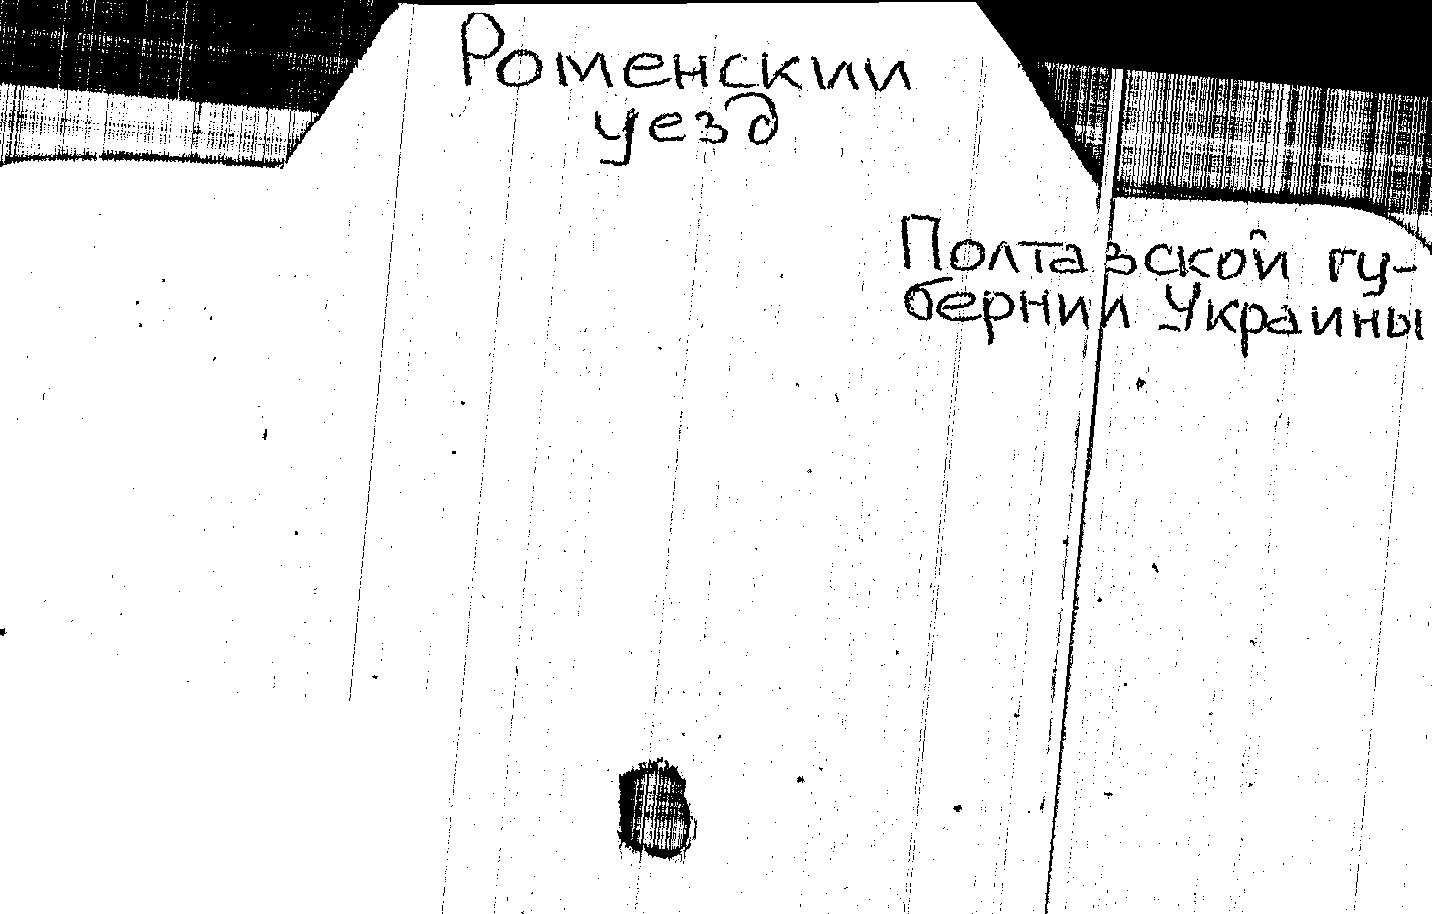 Роменскии
уезд
Полтавской гу-
бернии Украины